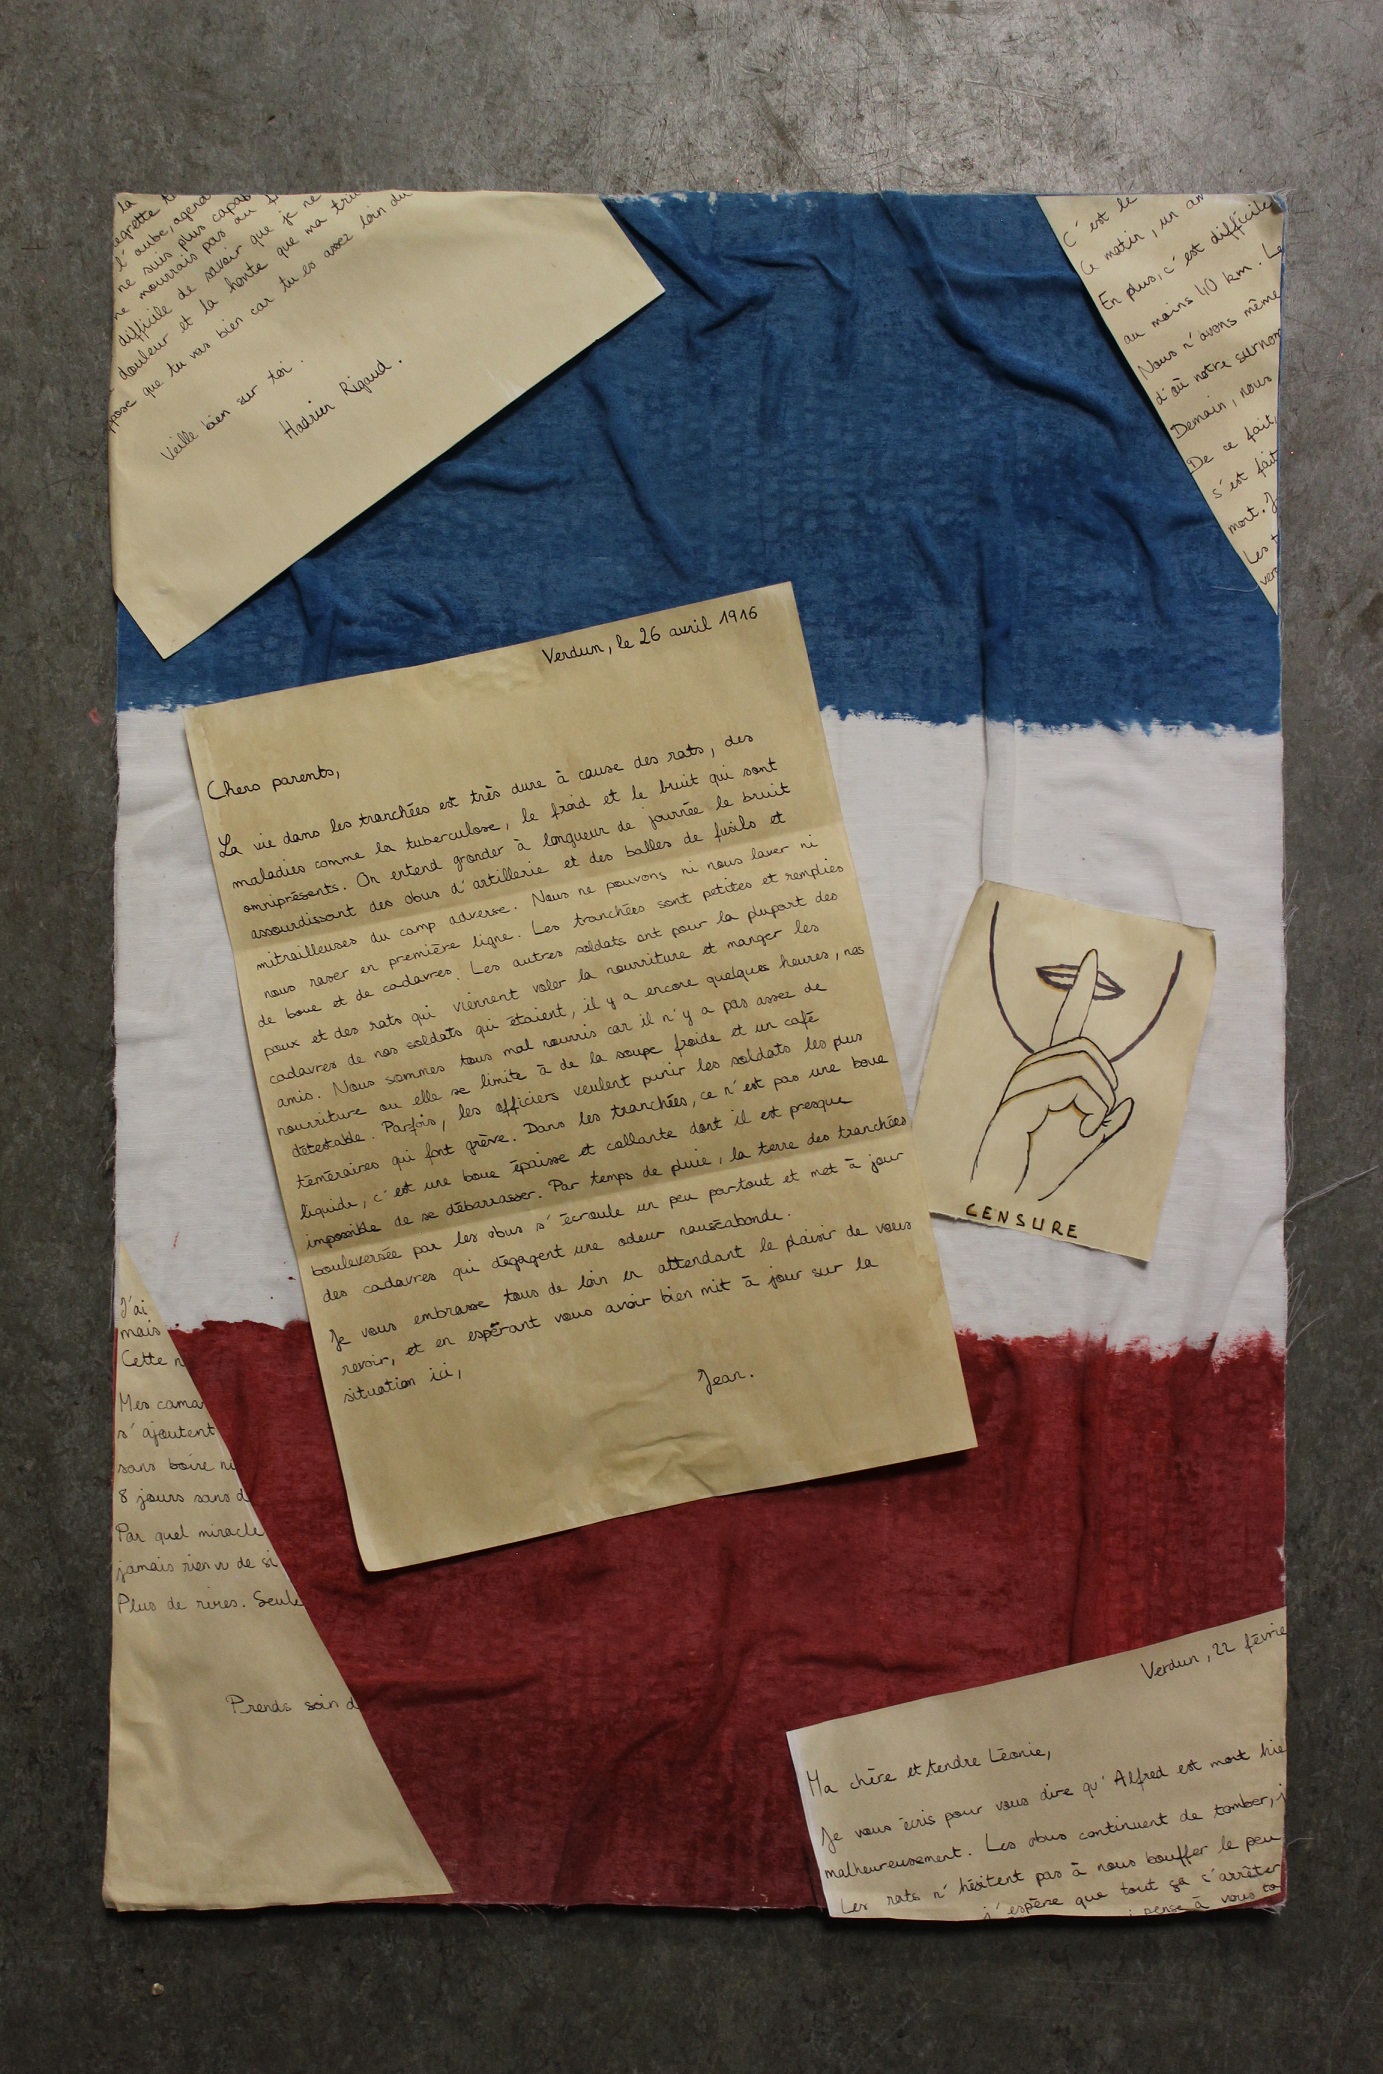 la
regrette
l'aube,
ne suis plus capab
ne mourrais pas au f
difficile de savoir que je ne
douleur et la honte que ma
ppose que tu vas bien car tu es assez loin du
Veille bien sur toi.
Hadrien Rigaud.
C'est le
Ce matin, un am
En plus, c'est difficile
au moins 40 km. Le
Nous n'avons même
d'où notre surnom
Demain, nous
De ce fait,
s'est fait
mort. J
Les t
verr
Verdun, le 26 avril 1916
Chers parents,
La vie dans les tranchées est très dure à cause des rats, des
maladies comme la tuberculose, le froid et le bruit qui sont
omniprésents. On entend gronder à longueur de journée le bruit
assourdissant des obus d'artillerie et des balles de fusils et
mitrailleuses du camp adverse. Nous ne pouvons ni nous laver ni
nous raser en première ligne. Les tranchées sont petites et remplies
de boue et de cadavres. Les autres soldats ont pour la plupart des
poux et des rats qui viennent voler la nourriture et manger les
cadavres de nos soldats qui étaient, il y a encore quelques heures, nos
amis. Nous sommes tous mal nourris car il n'y a pas assez de
nourriture ou elle se limite à de la soupe froide et un café
détestable. Parfois, les officiers veulent punir les soldats les plus
téméraires qui font grève. Dans les tranchées, ce n'est pas une boue
liquide, c'est une boue épaisse et collante dont il est presque
impossible de se débarrasser. Par temps de pluie, la terre des tranchées
bouleversée par les obus s'écroule un peu partout et met à jour
des cadavres qui dégagent une odeur nauséabonde.
Je vous embrasse tous de loin en attendant le plaisir de vous
revoir, et en espérant vous avoir bien mit à jour sur la
situation ici,
Jean.
CENSURE
J'ai
mais
Cette n
Mes camar
s'ajoutent
sans boire ni
8 jours sans d
Par quel miracle
jamais rien vu de si
Plus de rires. Seule
Prends soin d
Verdun, 22 févrie
Ma chère et tendre Léonie,
Je vous écris pour vous dire qu'Alfred est mort hie
malheureusement. Les obus continuent de tomber, j
Les rats n'hésitent pas à nous bouffer le peu
j'espère que tout ça s'arrêter
pense à vous to